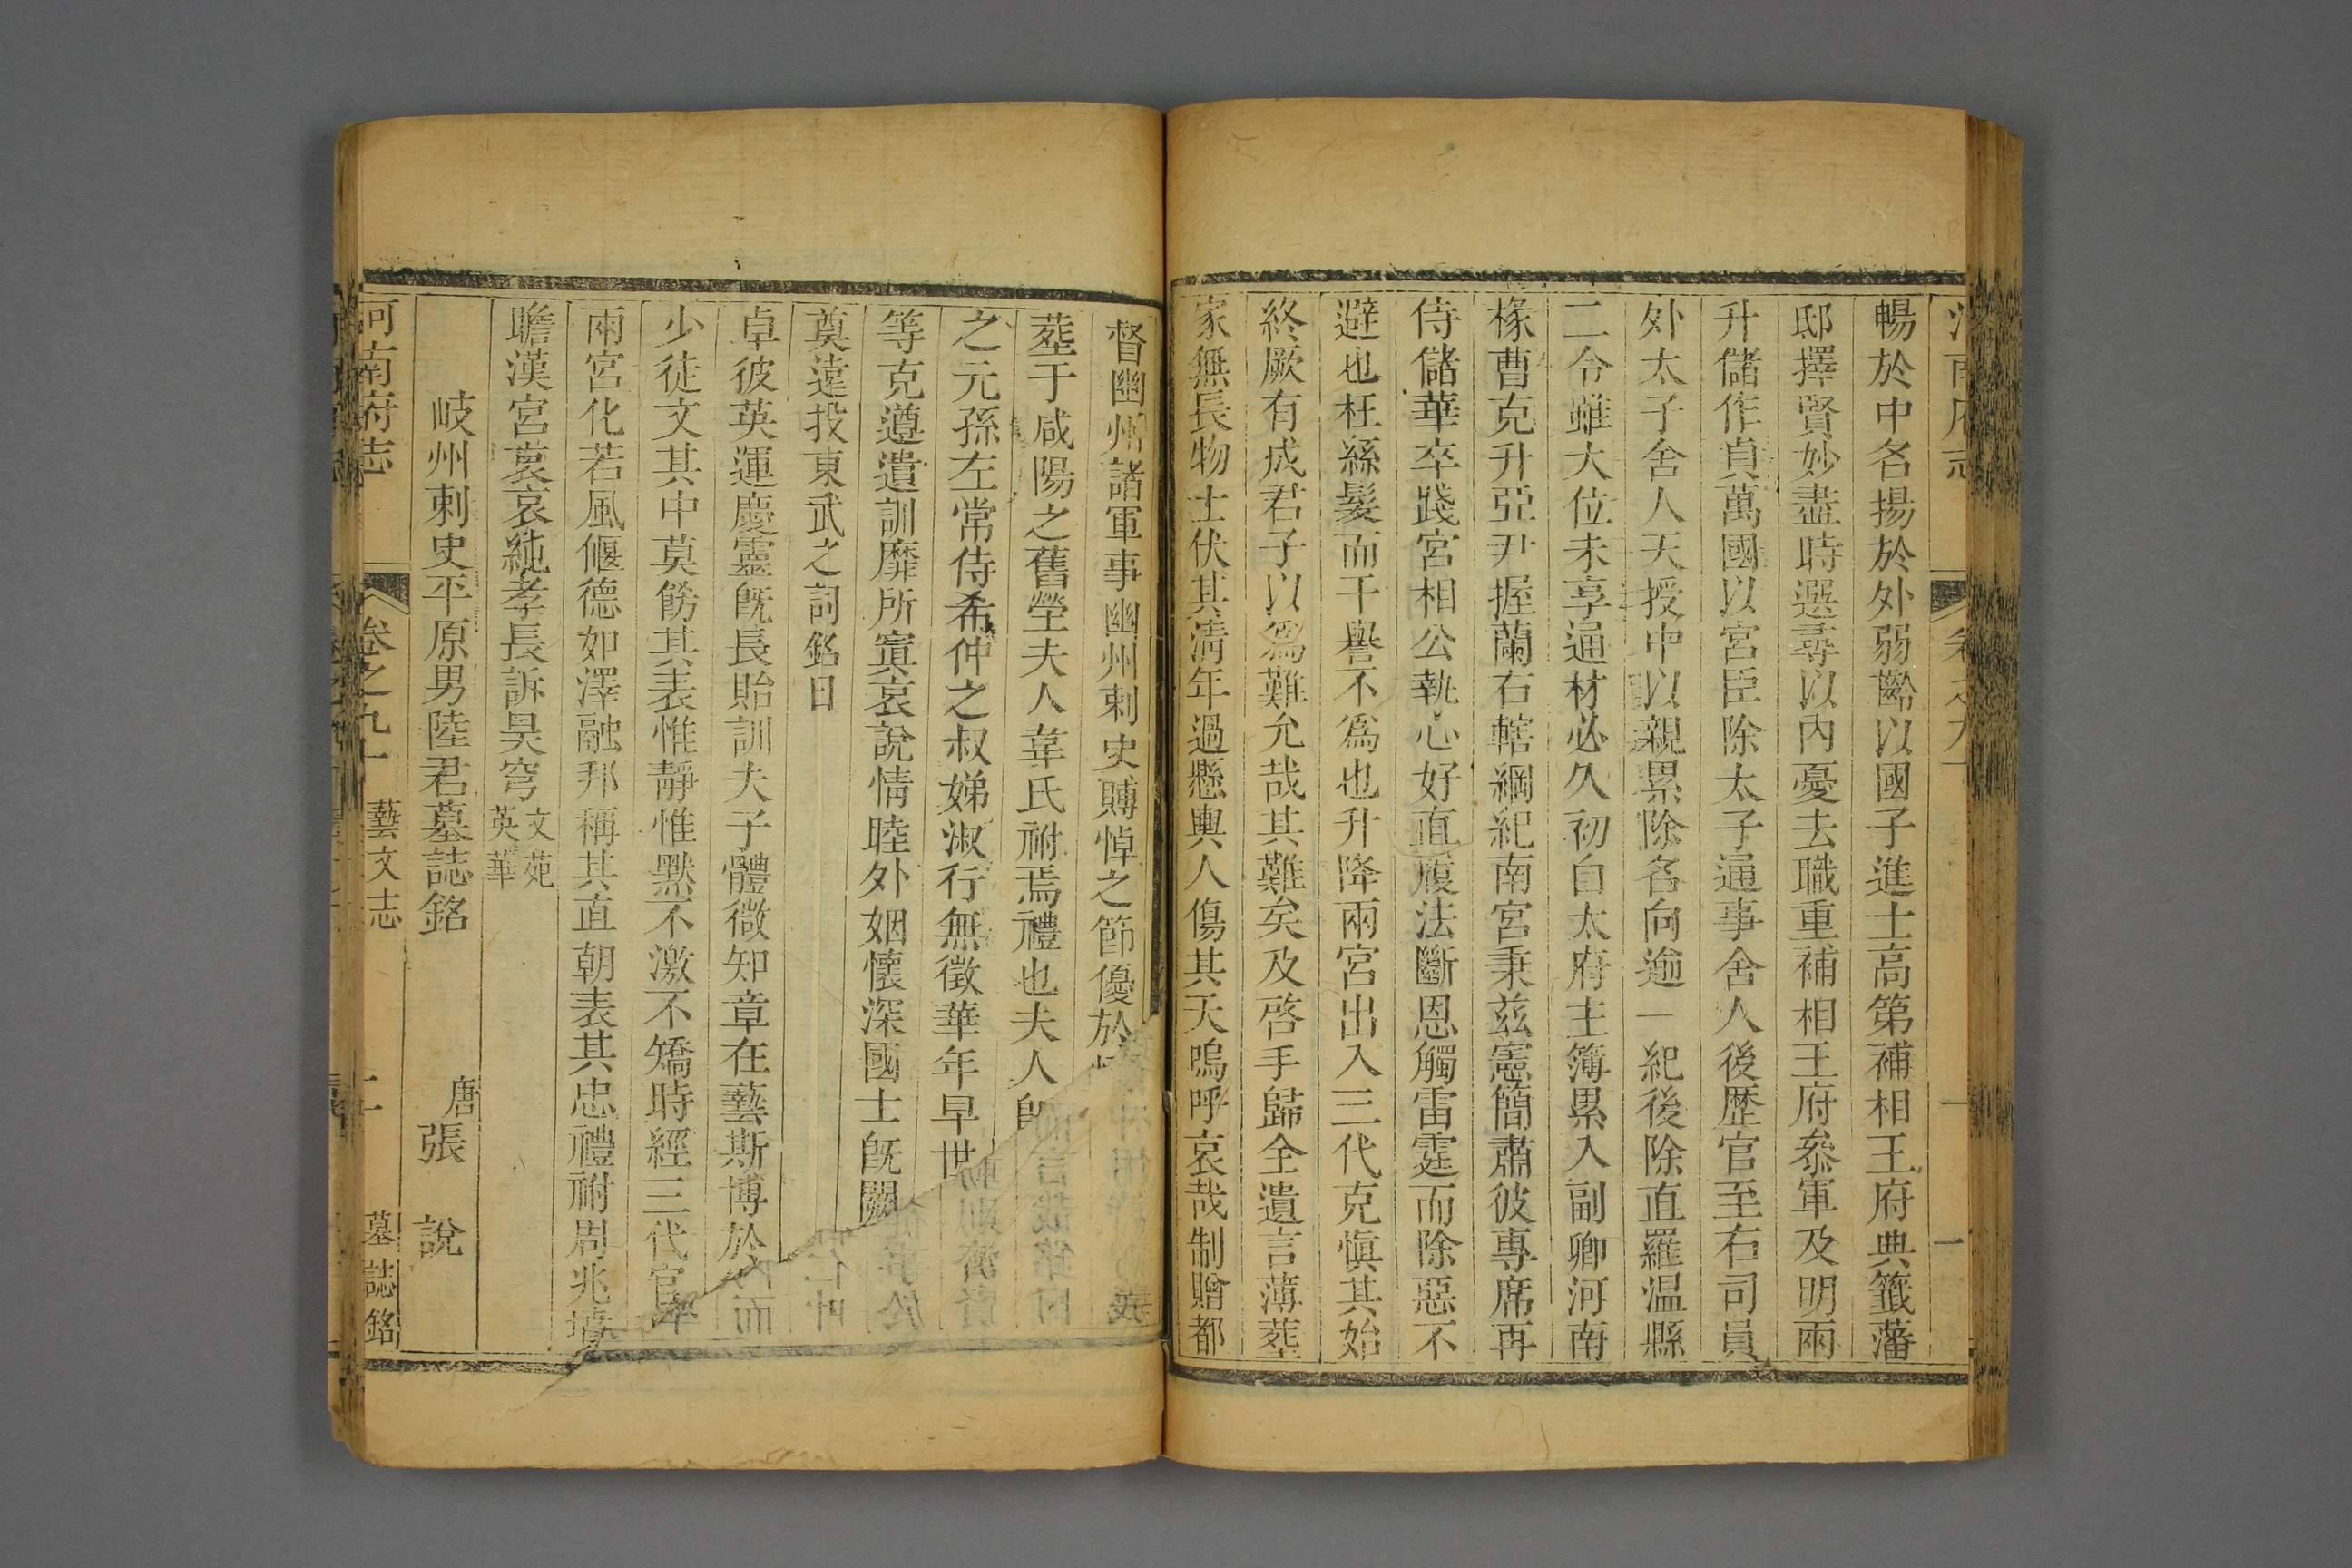 暢於中名揚於外弱齡以國子進士高第補相王府典籤藩
邸擇賢妙盡時選尋以內憂去職重補相王府叅軍及明兩
升儲作貞萬國以宮臣除太子通事舍人後歷官至右司員
外太子舍人天授中以親累除名向逾一紀後除直羅温縣
二令雖大位未享通材必久初自太府主簿累入副卿河南
椽曹克升亞尹握蘭右轄綱紀南宮秉兹憲簡肅彼專席再
侍儲華卒踐宮相公執心好直履法斷恩觸雷霆而除惡不
避也枉絲髮而干譽不爲也升降兩宮出入三代克愼其始
終厥有成君子以爲難允哉其難矣及啓手歸全遺言薄葬
家無長物士伏其淸年過懸輿人傷其天嗚呼哀哉制贈都
督幽州諸軍事幽州刺史賻悼之節優於
葬于咸陽之舊塋夫人韋氏祔焉禮也夫人
之元孫左常侍希仲之叔娣淑行無徵華年早世
等克遵遺訓靡所寘哀說情睦外姻懷深國士旣闕
奠遠投東武之詞銘曰
卓彼英運慶靈旣長貽訓夫子體微知章在藝斯博於
少徒文其中莫餝其表惟靜惟默不激不矯時經三代官
兩宮化若風偃德如澤融邦稱其直朝表其忠禮祔周兆墳
瞻漢宮蒖哀純孝長訴昊穹文苑英華
岐州刺史平原男陸君墓誌銘 唐張 說
河南府志 卷之九十 藝文志 二 墓誌銘